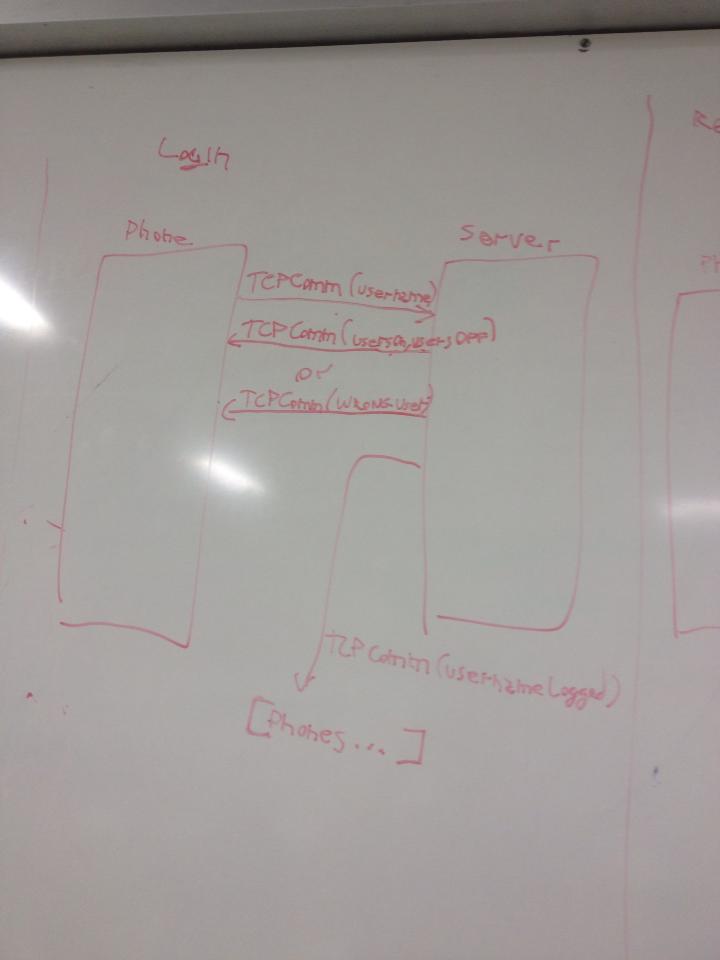 Login
Phone
Server
TCPComm(username)
TCPComm(usersOn,usersOff)
or
TCPComm(wrongUser)
TCPComm(usernameLogged)
[Phones...]